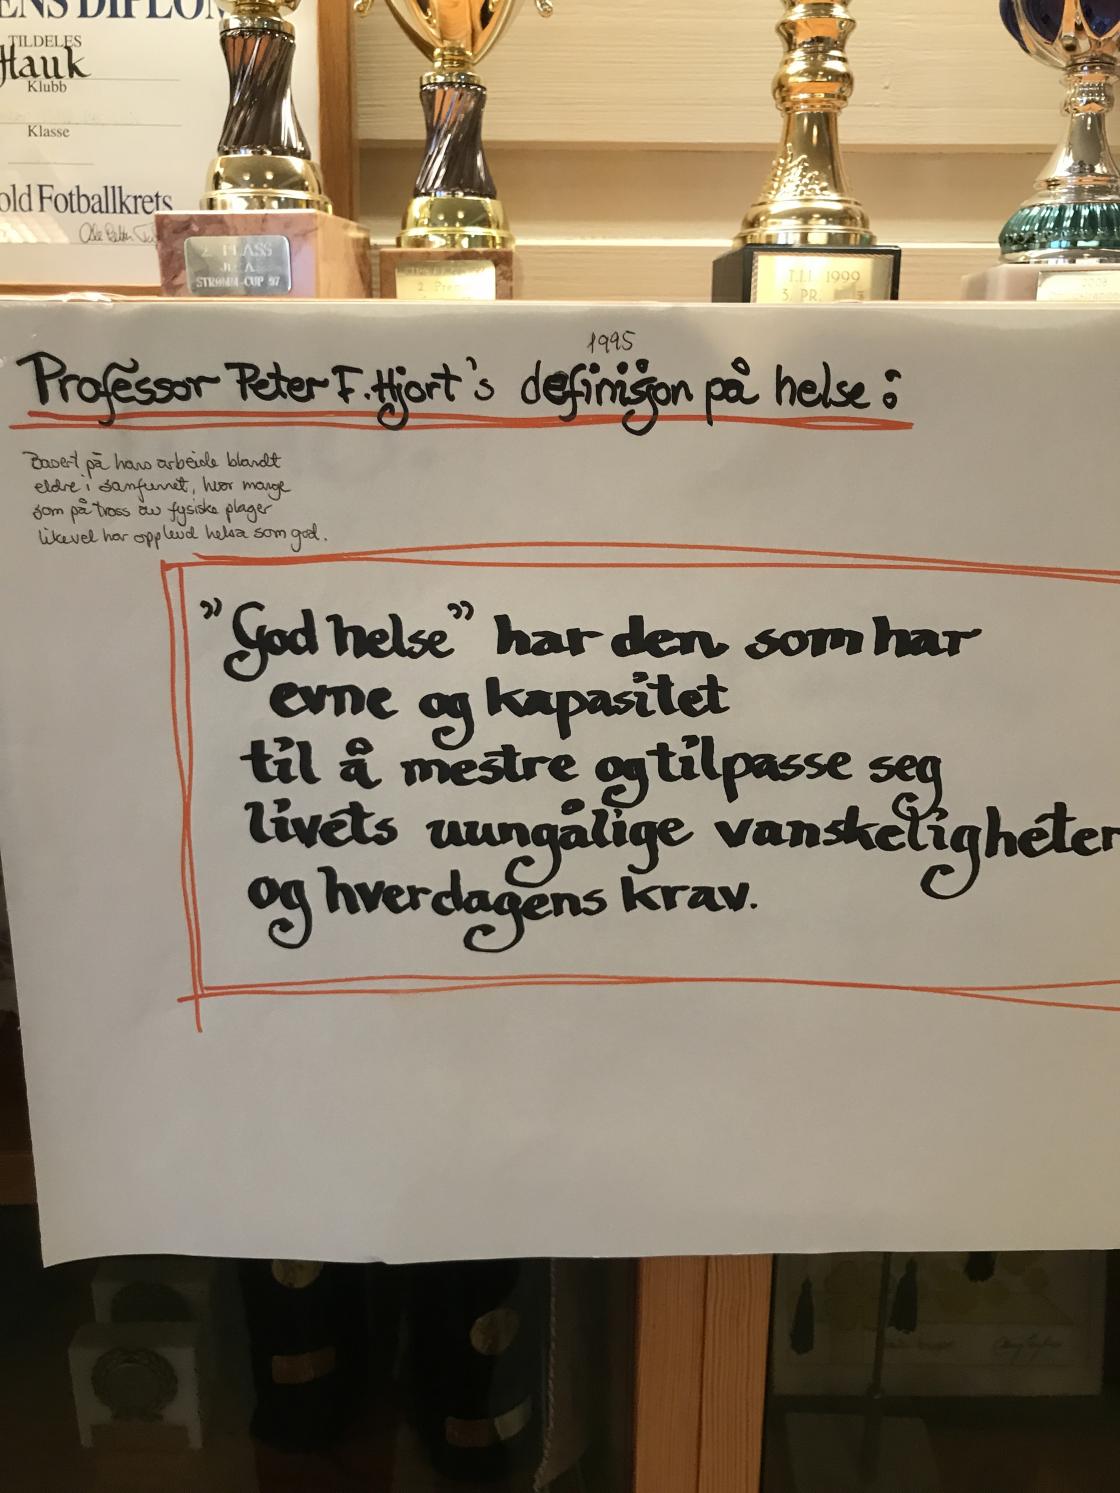 ENS DIPLOM
TILDELES
Hauk
Klubb
Klasse
old Fotballkrets
2. PLASS
STRØMM-CUP 97
2. Pre
T.I.L. 1999
3. PR.
2008
1995
Professor Peter F. Hjort's definisjon på helse:
Basert på hans arbeide blandt
eldre i samfunnet, hvor mange
som på tross av fysiske plager
likevel har opplevd helsa som god.
"God helse" har den som har
evne og kapasitet
til å mestre og tilpasse seg
livets uungålige vanskeligheter
og hverdagens krav.